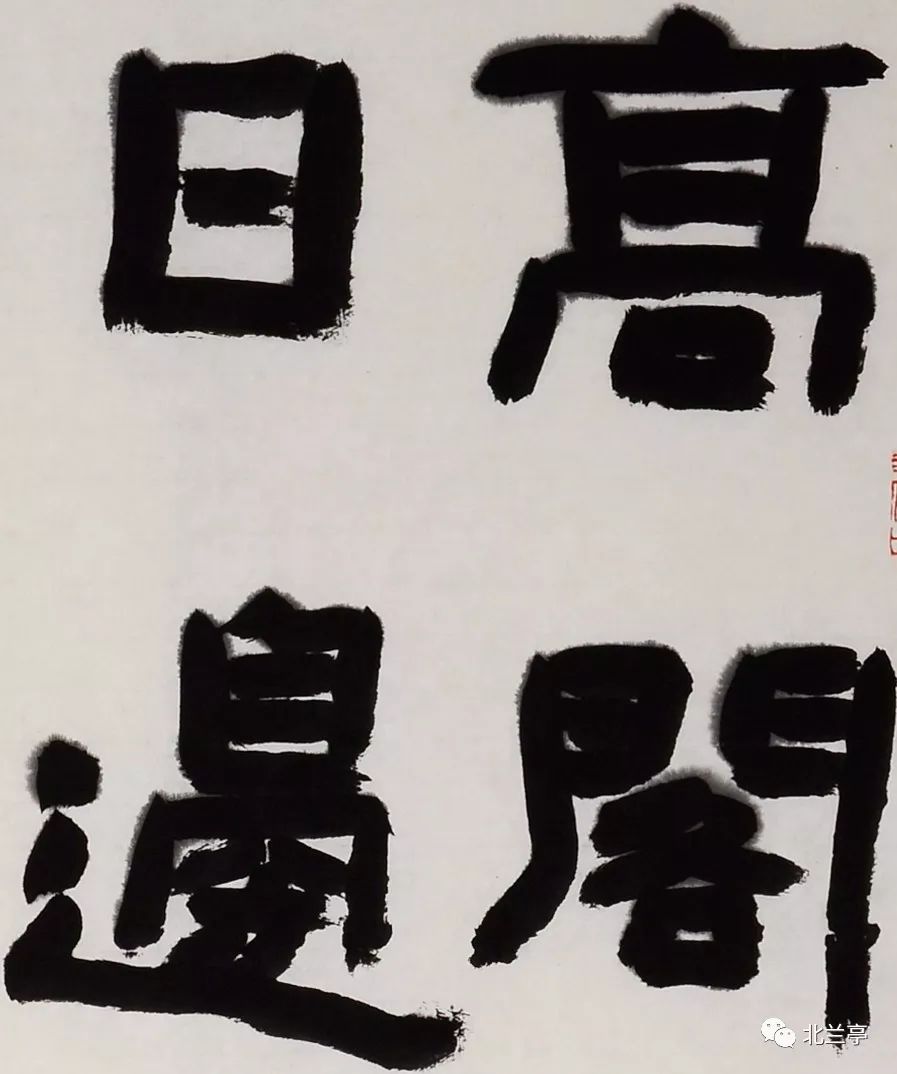 髙閣
日邊
北兰亭